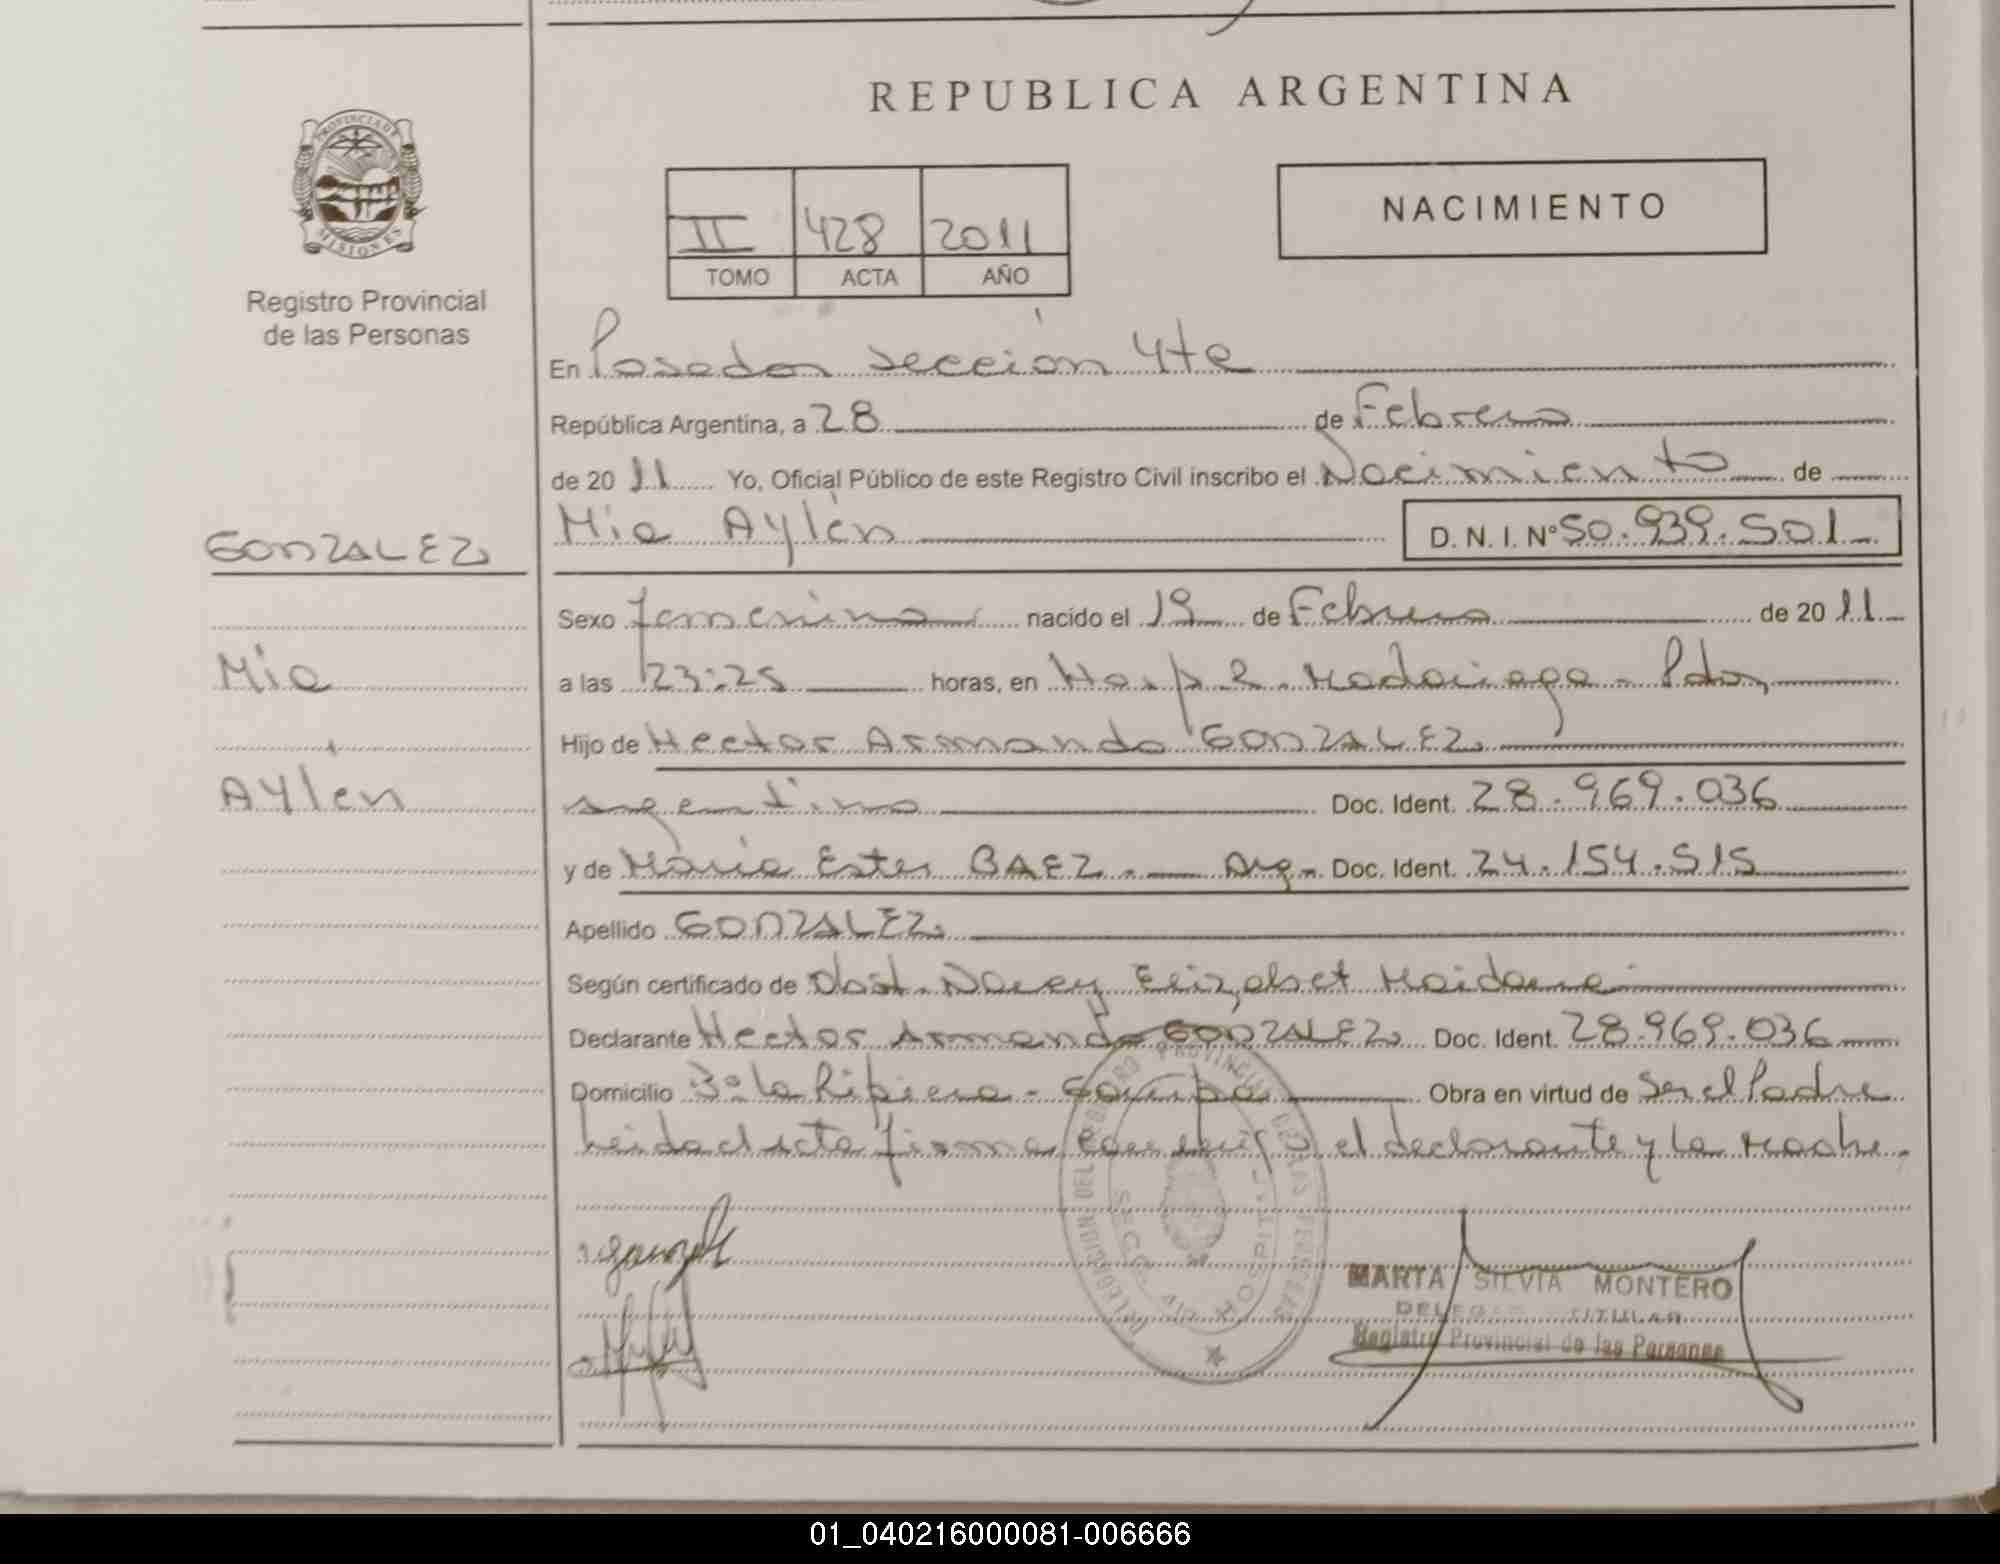 REPUBLICA ARGENTINA
PROVINCIA DE
MISIONES
Registro Provincial
de las Personas
NACIMIENTO
II 428 2011
TOMO ACTA AÑO
En Posadas sección 4ta
República Argentina, a 28 de Febrero
de 20 11 Yo, Oficial Público de este Registro Civil inscribo el Nacimiento de
GONZALEZ
Mia Aylén
D. N. I. Nº 50.939.501
Sexo femenino nacido el 19 de Febrero de 20 11
Mia
a las 23:25 horas, en Hosp. R. Madariaga - Pdas,
Hijo de Hector Armando GONZALEZ
Aylén
argentino Doc. Ident. 28.969.036
y de Maria Ester BAEZ. Arg. Doc. Ident. 24.154.515
Apellido GONZALEZ
Según certificado de Obst. Nancy Elizabet Maidana
Declarante Hector Armando GONZALEZ Doc. Ident. 28.969.036
Domicilio Bº la Ribiera - Garupa Obra en virtud de Ser el Padre
Leida el acta firma conmigo el declarante y la madre.
DELEGACION DEL REGISTRO PROVINCIAL DE LAS PERSONAS
HOSPITAL
MARTA SILVIA MONTERO
DELEGADA TITULAR
Registro Provincial de las Personas
01_040216000081-006666